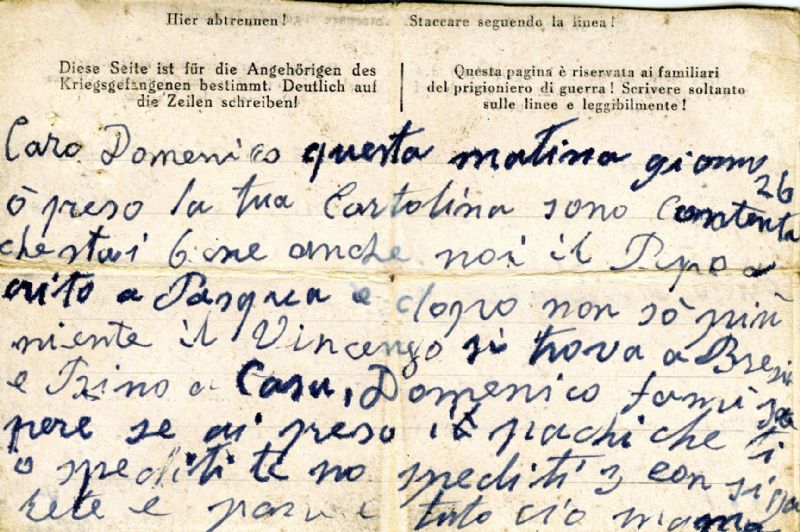 Hier abtrennen!
Staccare seguendo la linea!
Diese Seite ist für die Angehörigen des
Kriegsgefangenen bestimmt. Deutlich auf
die Zeilen schreiben!
Questa pagina è riservata ai familiari
del prigioniero di guerra! Scrivere soltanto
sulle linee e leggibilmente!
Caro Domenico questa matina giorno 26
ò preso la tua Cartolina sono Contenta
che stai bene anche noi il Pepo a
crito a Pasqua e dopo non sò più
niente il Vincenzo si trova a Bresi
e Pino a Casa, Domenico fami sa
pere se ai preso i pachi che ti
ò spediti te no spediti 3 con siga
rete e e tuto ciò